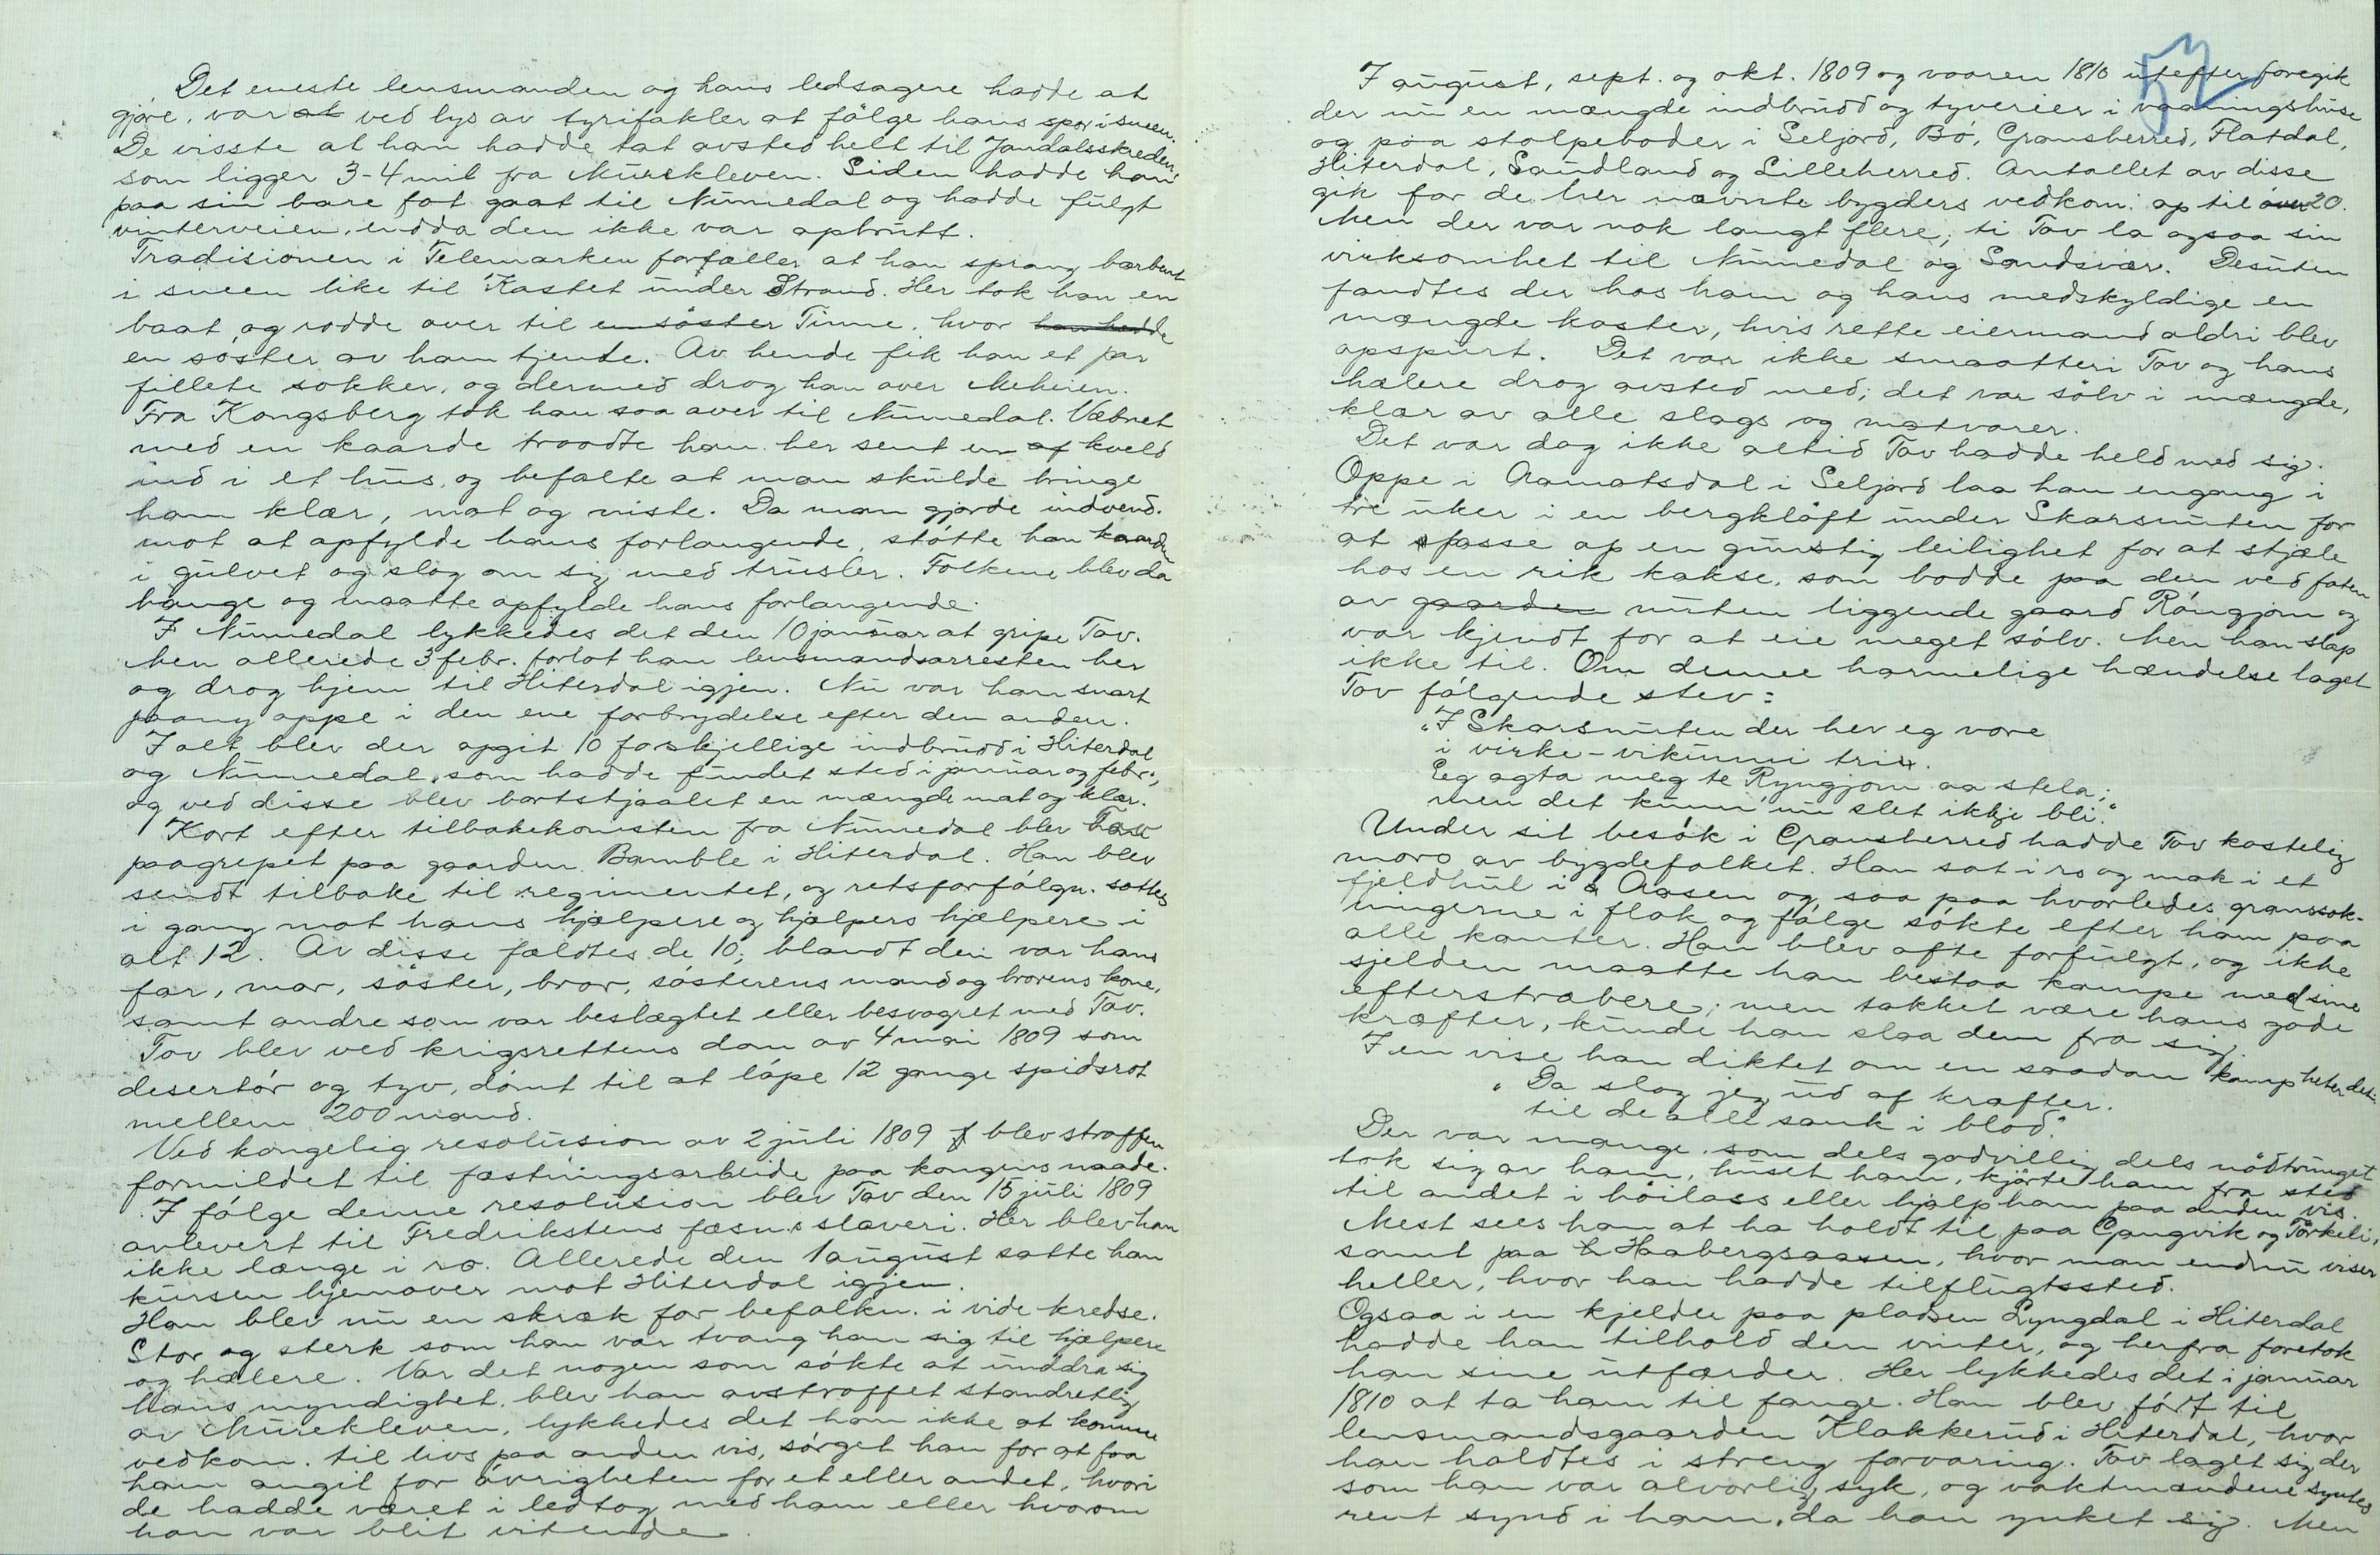 Det eneste lensmanden og hans ledsagere hadde at
gjøre, var at ved lys av tyrifakler at følge hans spor i sneen.
De visste at han hadde tat avsted helt til Jandalsskreden
som ligger 3-4 mil fra Murekleven. Siden hadde han
paa sin bare fot gaat til Numedal og hadde fulgt
vinterveien, endda den ikke var opbrutt.
Tradisionen i Telemarken fortæller at han sprang barbent
i sneen like til Kastet under Strand. Her tok han en
baat og rodde over til en søster Tinne, hvor han hadde
en søster av ham tjente. Av hende fik han et par
fillete sokker, og dermed drog han over Meheien.
Fra Kongsberg tok han saa over til Numedal. Væbnet
med en kaarde traadte han her sent en af kveld
ind i et hus, og befalte at man skulde bringe
ham klær, mat og niste. Da man gjorde indvend.
mot at opfylde hans forlangende, støtte han kaarden
i gulvet og slog om sig med trusler. Folkene blev da
bange og maatte opfylde hans forlangende.
I Numedal lykkedes det den 10 januar at gripe Tov.
Men allerede 3 febr. forlot han lensmandsarresten her
og drog hjem til Hiterdal igjen. Nu var han snart
paany oppe i den ene forbrydelse efter den anden.
I alt blev der opgit 10 forskjellige indbrudd i Hiterdal
og Numedal, som hadde fundet sted i januar og febr.,
og ved disse blev bortstjaalet en mængde mat og klær.
Kort efter tilbakekomsten fra Numedal blev Tov
paagrepet paa gaarden Bamble i Hiterdal. Han blev
sendt tilbake til regimentet, og retsforfølgn. sattes
i gang mot hans hjælpere og hjælpers hjælpere i
alt 12. Av disse fældtes de 10; blandt den var hans
far, mor, søster, bror, søsterens mand og brorens kone,
samt andre som var beslægtet eller besvogret med Tov.
Tov blev ved krigsrettens dom av 4 mai 1809 som
desertør og tyv, dømt til at løpe 12 gange spidsrot
mellem 200 mand.
Ved kongelig resolusion av 2 juli 1809 blev straffen
formildet til fæstningsarbeide paa kongens naade.
I følge denne resolusion blev Tov den 15 juli 1809
avlevert til Fredrikstens fæsn.s slaveri. Her blev han
ikke længe i ro. Allerede den 1 august satte han
kursen hjemover mot Hiterdal igjen.
Han blev nu en skræk for befolkn. i vide kredse.
Stor og sterk som han var tvang han sig til hjælpere
og hælere. Var det nogen som søkte at unddra sig
hans myndighet, blev han avstraffet standretlig
av Murekleven, lykkedes det ham ikke at komme
vedkom. til livs paa anden vis, sørget han for at faa
ham angit for øvrigheten for et eller andet, hvori
de hadde været i ledtog med ham eller hvorom
han var blit vitende.
57
I august, sept. og okt. 1809 og vaaren 1810 utefter foregik
der nu en mængde indbrudd og tyverier i vaaningshuse
og paa stolpeboder i Seljord, Bø, Gransherred, Flatdal,
Hiterdal, Saudland og Lilleherred. Antallet av disse
gik for de her nævnte bygders vedkom. op til over 20.
Men der var nok langt flere; ti Tov la ogsaa sin
virksomhet til Numedal og Sandsvær. Desuten
fandtes der hos ham og hans medskyldige en
mængde koster, hvis rette eiermand aldri blev
opspurt. Det var ikke smaatteri Tov og hans
hælere drog avsted med; det var sølv i mængde,
klær av alle slags og matvarer.
Det var dog ikke altid Tov hadde held med sig.
Oppe i Aamotsdal i Seljord laa han engang i
tre uker i en bergkløft under Skarsnuten for
at passe op en gunstig leilighet for at stjæle
hos en rik kakse, som bodde paa den ved foten
av gaarden nuten liggende gaard Røngjom og
var kjendt for at eie meget sølv. Men han slap
ikke til. Om denne harmelige hændelse laget
Tov følgende stev:
"I Skarsnuten der hev eg vore
i virke-vikunni tri.
Eg agta meg te Ryngjom aa stela;
men det kunn' nu slet ikkje bli."
Under sit besøk i Gransherred hadde Tov kostelig
moro av bygdefolket. Han sat i ro og mak i et
fjeldhul i Aasen og saa paa hvorledes granssok-
ningerne i flok og følge søkte efter ham paa
alle kanter. Han blev ofte forfulgt, og ikke
sjelden maatte han bestaa kampe med sine
efterstræbere; men takket være hans gode
kræfter, kunde han slaa dem fra sig.
I en vise han diktet om en saadan kamp heter det:
"Da slog jeg ud af kræfter.
til de alle sank i blod."
Der var mange, som dels godvillig dels nødtvunget
tok sig av ham, huset ham, kjørte ham fra sted
til andet i høilass eller hjalp ham paa anden vis.
Mest sees han at ha holdt til paa Gangvik og Torkeli,
samt paa Haabergsaasen, hvor man endnu viser
heller, hvor han hadde tilflugtssted.
Ogsaa i en kjelder paa pladsen Lyngdal i Hiterdal
hadde han tilhold den vinter, og herfra foretok
han sine utfærder. Her lykkedes det i januar
1810 at ta ham til fange. Han blev ført til
lensmandsgaarden Klakkerud i Hiterdal, hvor
han holdtes i streng forvaring. Tov laget sig der
som han var alvorlig syk, og vaktmændene syntes
rent synd i ham, da han ynket sig. Men